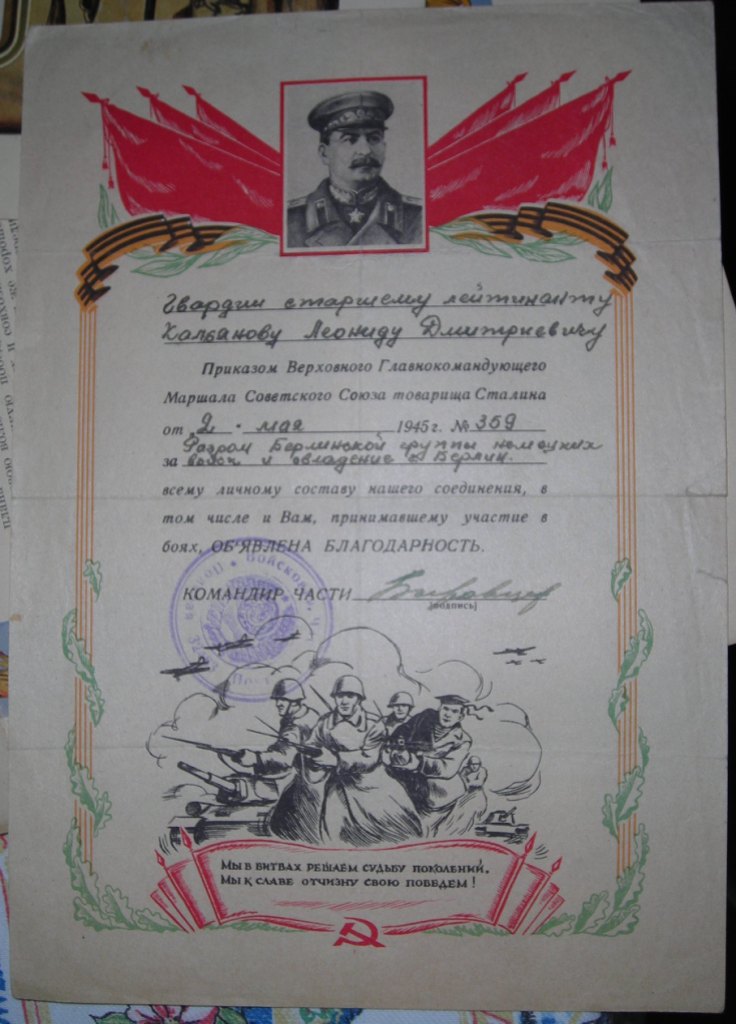 Гвардии старшему лейтинанту
Калбанову Леониду Дмитриевичу
Приказом Верховного Главнокомандующего
Маршала Советского Союза товарища Сталина
от 2 · мая 1945 г. № 359
за Разгром Берлинской группы немецких
войск и овладение г Берлин.
всему личному составу нашего соединения, в
том числе и Вам, принимавшему участие в
боях, ОБ'ЯВЛЕНА БЛАГОДАРНОСТЬ.
КОМАНДИР ЧАСТИ
(подпись)
Полевая • Войсковая ч
Мы в битвах решаем судьбу поколений,
Мы к славе отчизну свою поведем!